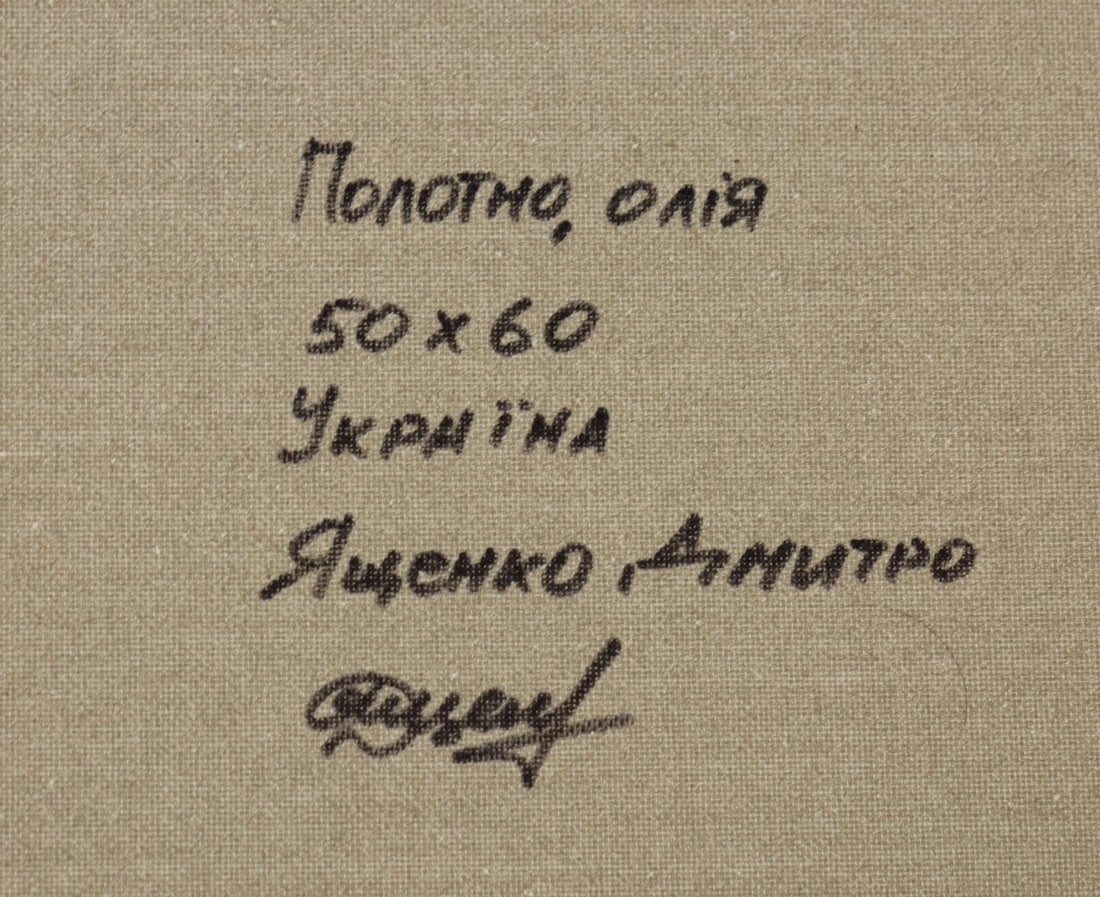 Полотно, олія
50 x 60
Україна
Ященко Дмитро